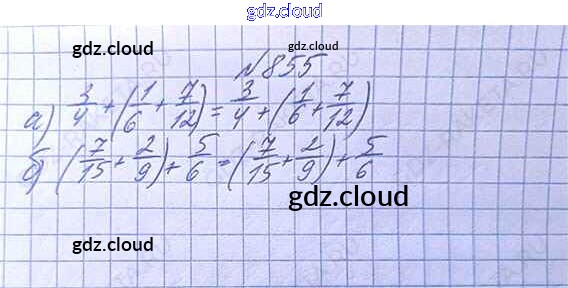 gdz.cloud
gdz.cloud gdz.cloud
№ 855
а) 3/4 + (1/6 + 7/12) = 3/4 + (1/6 + 7/12)
б) (7/15 + 2/9) + 5/6 = (7/15 + 2/9) + 5/6
gdz.cloud
gdz.cloud